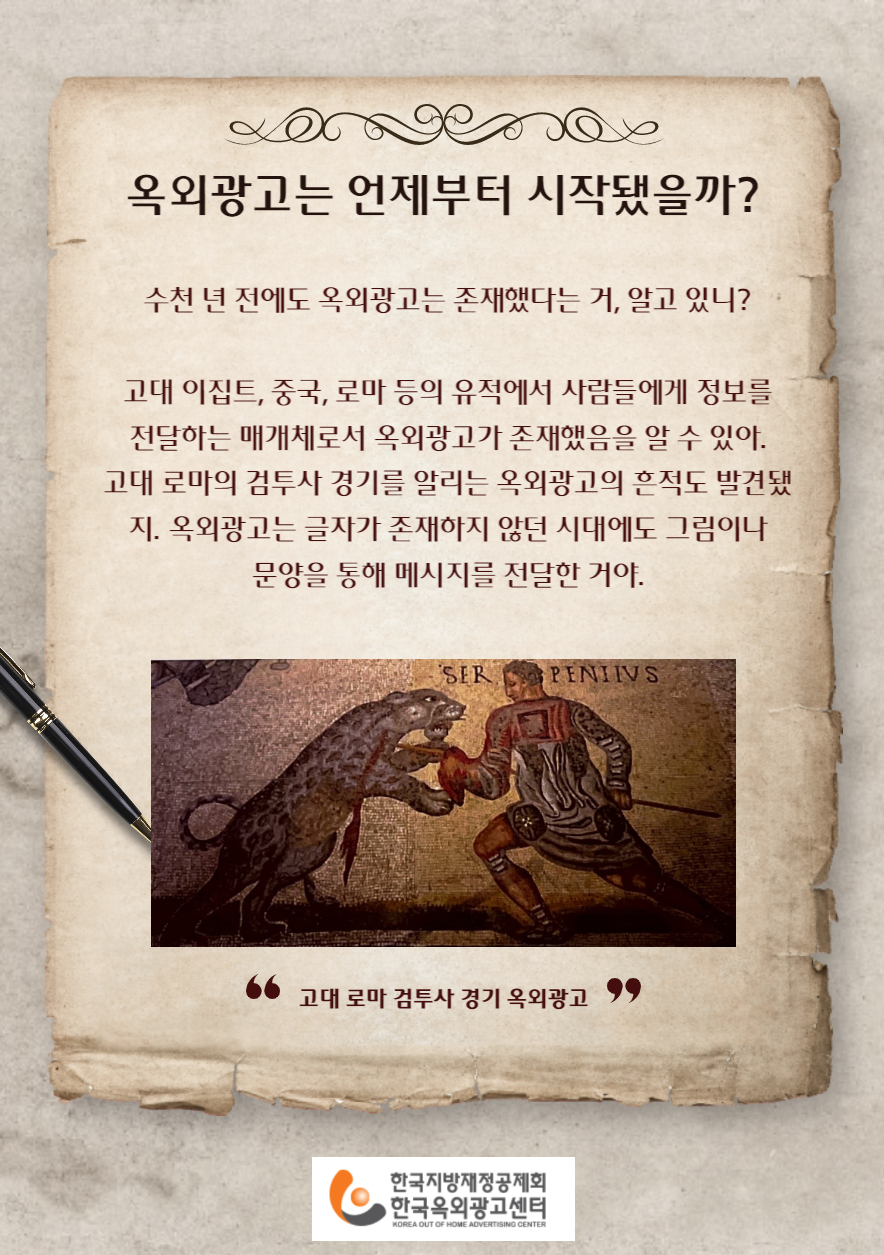 옥외광고는 언제부터 시작됐을까?
수천 년 전에도 옥외광고는 존재했다는 거, 알고 있니?
고대 이집트, 중국, 로마 등의 유적에서 사람들에게 정보를
전달하는 매개체로서 옥외광고가 존재했음을 알 수 있어.
고대 로마의 검투사 경기를 알리는 옥외광고의 흔적도 발견됐
지. 옥외광고는 글자가 존재하지 않던 시대에도 그림이나
문양을 통해 메시지를 전달한 거야.
SER PENIIVS
“ 고대 로마 검투사 경기 옥외광고 ”
한국지방재정공제회
한국옥외광고센터
KOREA OUT OF HOME ADVERTISING CENTER